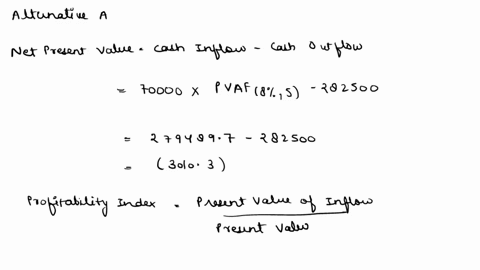 Alternative A
Net Present Value = Cash Inflow - Cash Outflow
= 70000 x PVAF(8%,5) - 282500
= 279489.7 - 282500
= (3010.3)
Profitability Index = Present Value of Inflow
Present Value